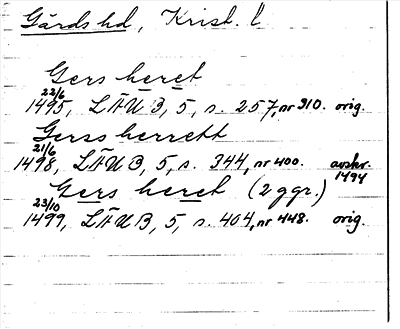 Gärds hd, Krist. l
Gers heret
22/6 1495, LÄUB, 5, s. 257, nr 310. orig.
Gerss herrett
21/6 1498, LÄUB, 5, s. 344, nr 400. avskr. 1494
Gers heret (2 ggr.)
23/10 1499, LÄUB, 5, s. 404, nr 448. orig.